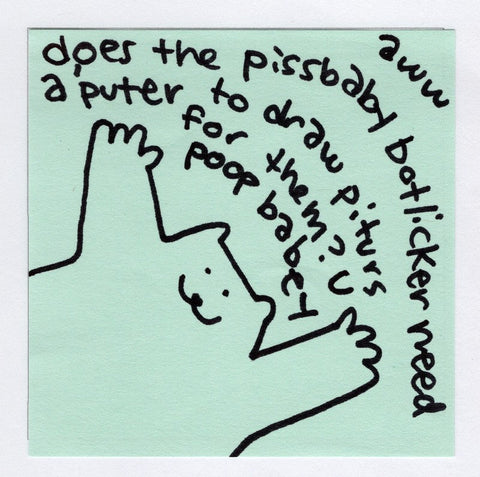 aww
does the pissbaby botlicker need
a 'puter to draw piturs
for them?
poop babey